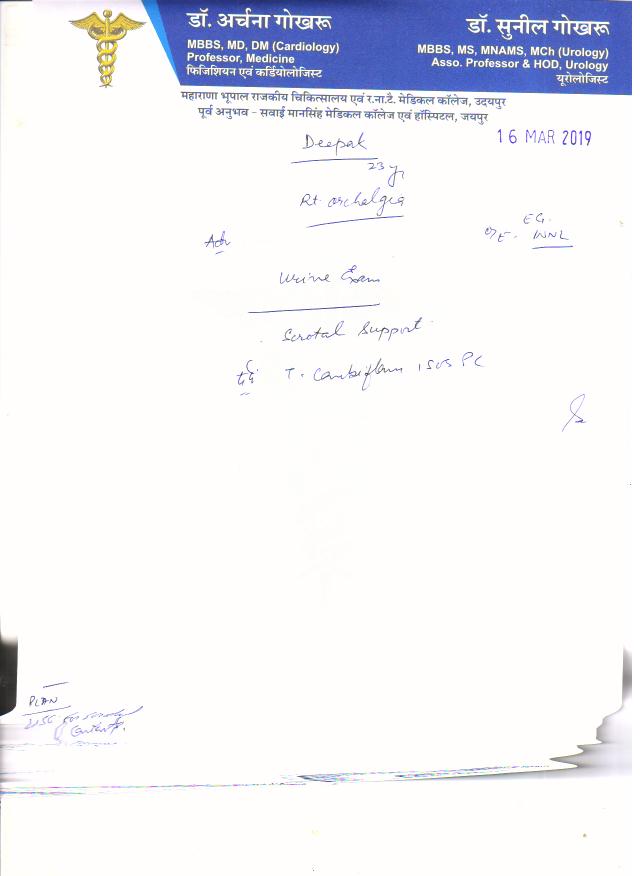 डॉ. अर्चना गोखरू
MBBS, MD, DM (Cardiology)
Professor, Medicine
फिजिशियन एवं कर्डियोलोजिस्ट
डॉ. सुनील गोखरू
MBBS, MS, MNAMS, MCh (Urology)
Asso. Professor & HOD, Urology
यूरोलोजिस्ट
महाराणा भूपाल राजकीय चिकित्सालय एवं र.ना.टै. मेडिकल कॉलेज, उदयपुर
पूर्व अनुभव - सवाई मानसिंह मेडिकल कॉलेज एवं हॉस्पिटल, जयपुर
16 MAR 2019
Deepak
23 yr
Rt. orchalgia
Adv
EG.
O/E. WNL
Urine Exam
Scrotal Support
दर्द T. Combiflam 1 SOS PC
PLAN
USG for scrotal